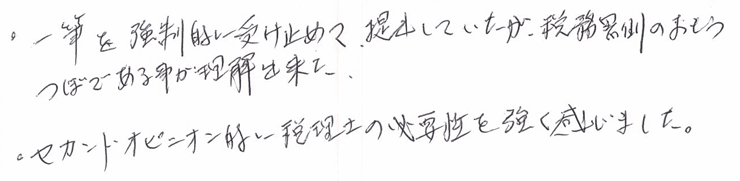 ・一筆を強制的に受け止めて、提出していたが、税務署側のおもう
つぼである事が理解出来た。
・セカンドオピニオン的に税理士の必要性を強く感じました。